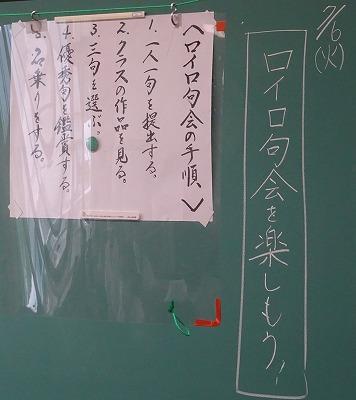 7/6
(火)
ロイロ句会を楽しもう!
<ロイロ句会の手順>
1.一人一句を提出する。
2.クラスの作品を見る。
3.三句を選ぶ。
4.優秀句を鑑賞する。
5.名乗りをする。